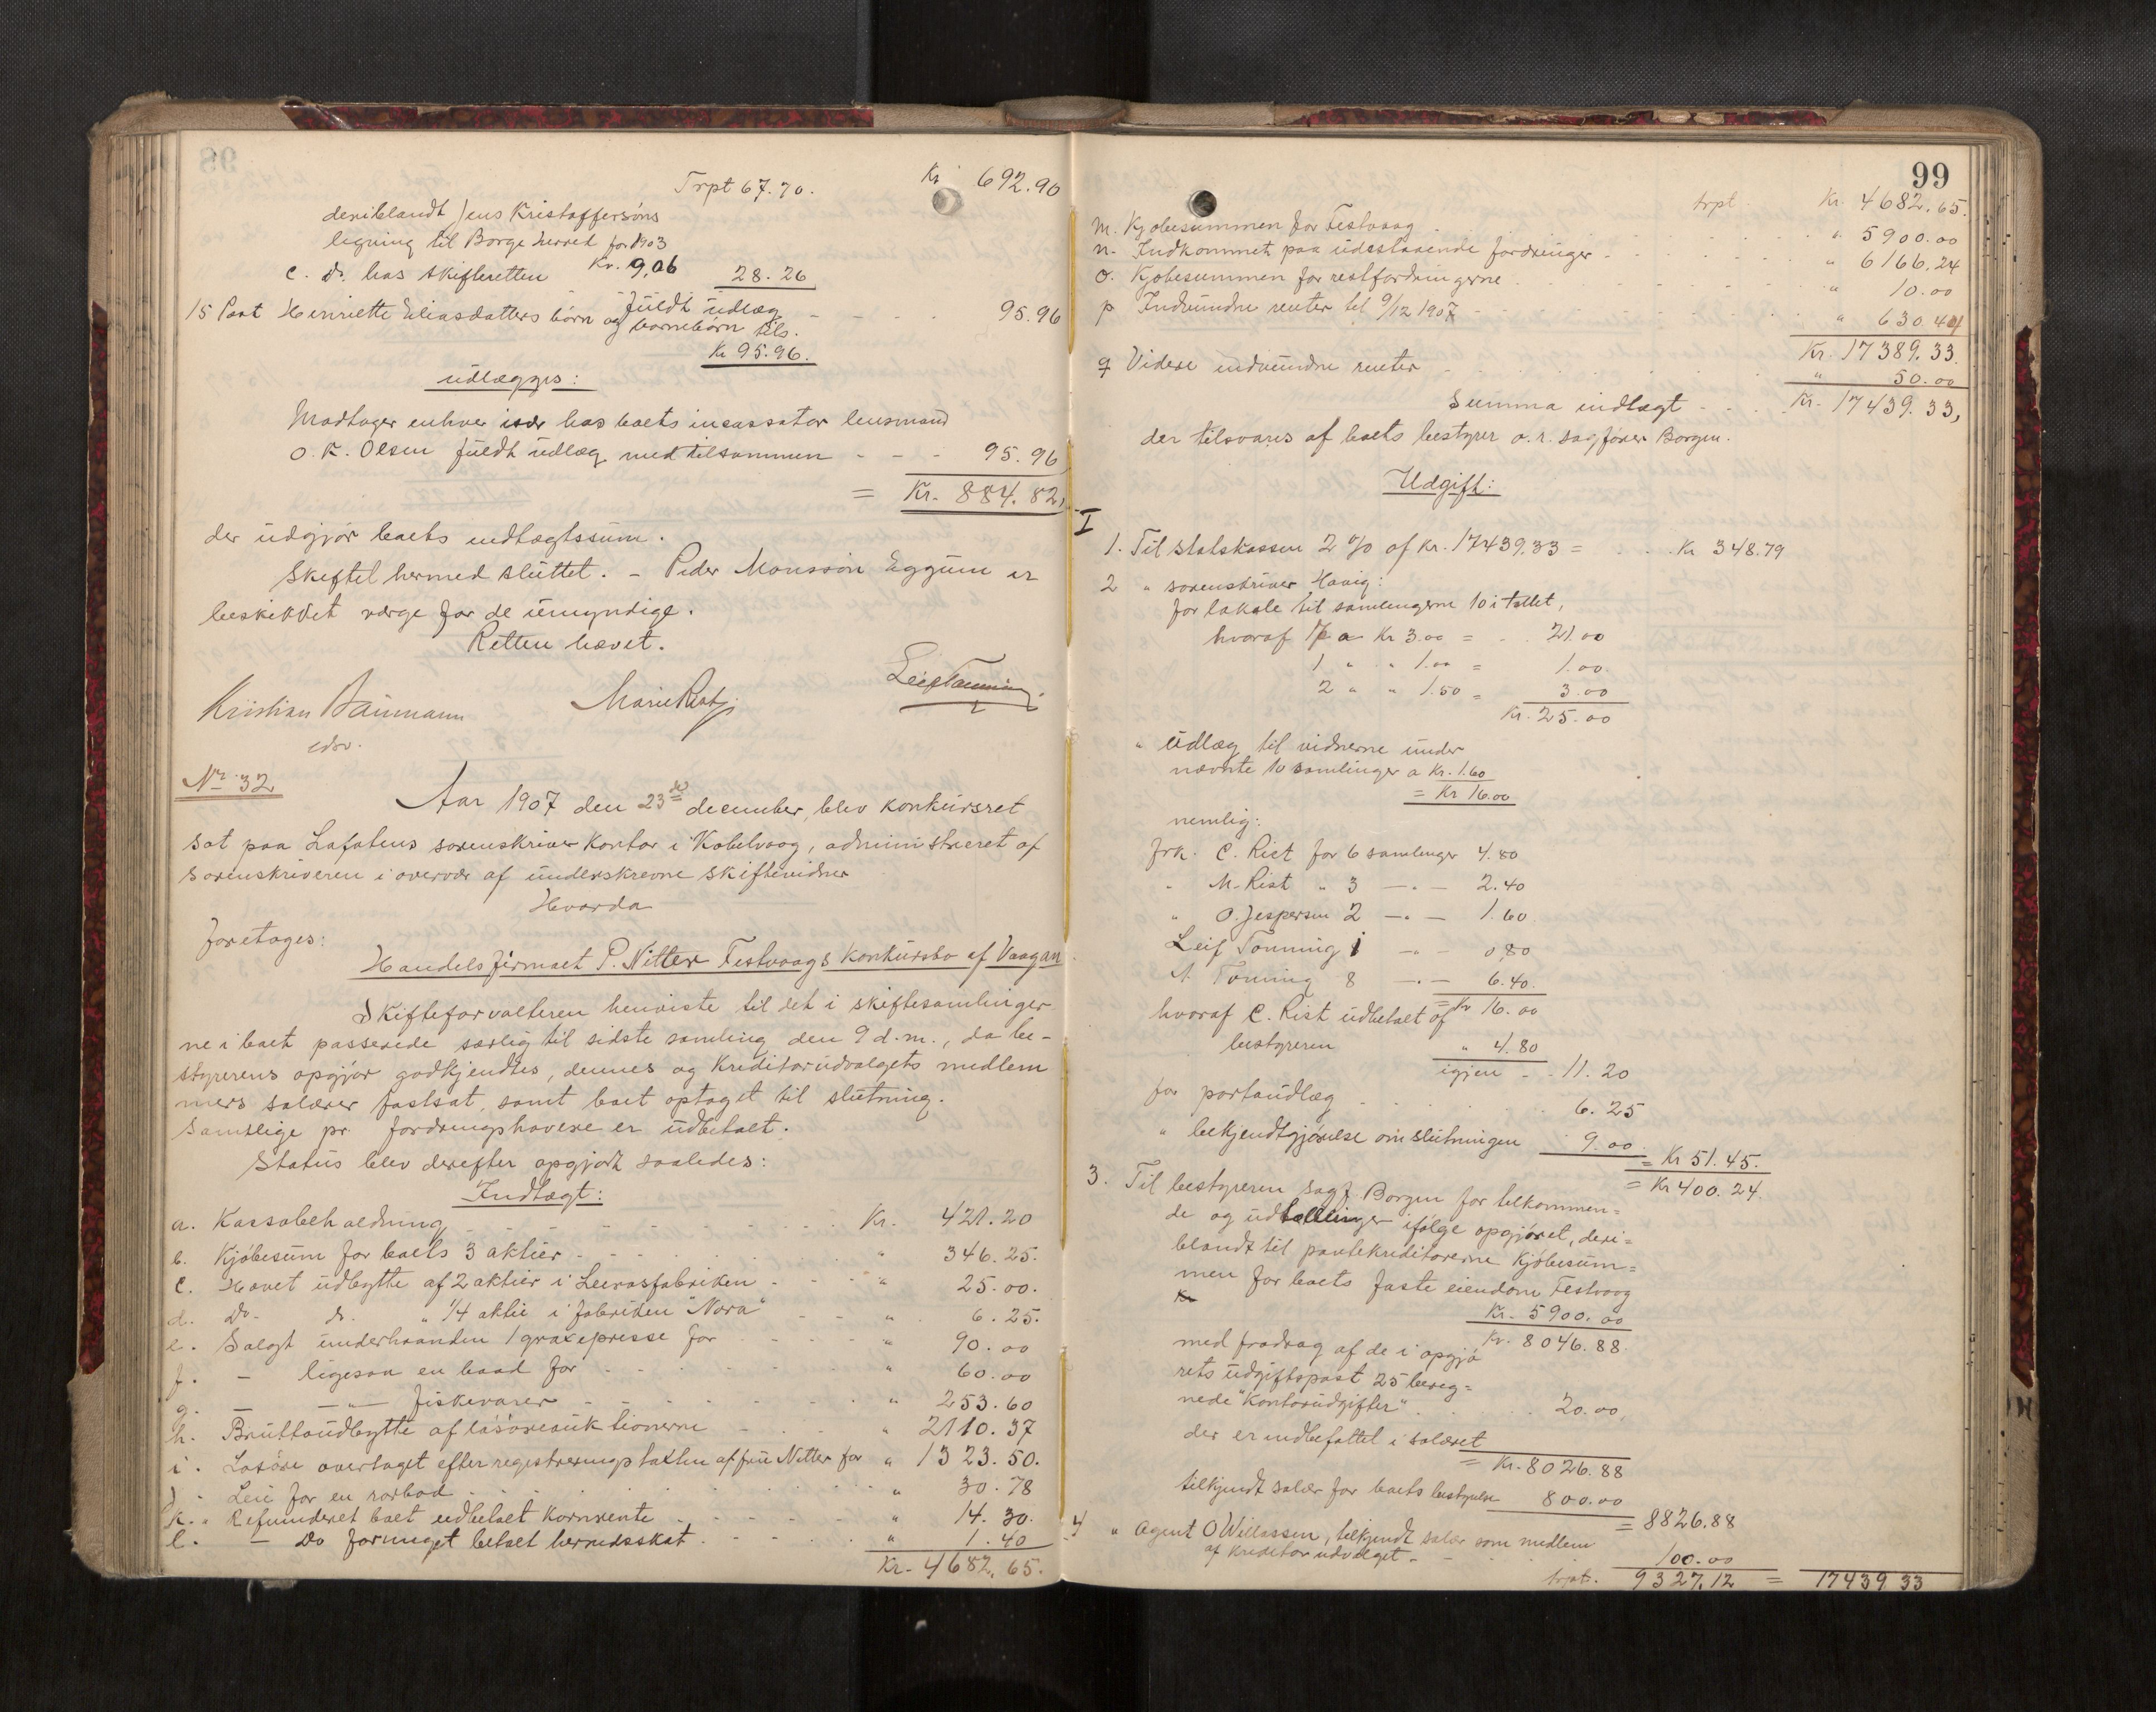 Trpt 67.70. Kr 692.90
deriblandt Jens Kristoffersöns
ligning til Borge herred for 1903
Kr. 9.06
c. Do. hos skifteretten 28.26
fuldt udlæg
15 Paat Henriette Eliasdatters börn og barnebörn tils. 95.96
Kr 95.96.
udlægges:
Modtager enhver især hos boets incassator lensmand
O. K. Olsen fuldt udlæg med tilsammen - - - 95.96
= Kr. 884.82,
der udgjör boets indtægtssum.
Skiftet hermed sluttet. - Peder Monssön Eggum er
beskikket værge for de umyndige.
Retten hævet.
Kristian Baumann
edsv.
Marie Rist
Leif Tonning
No 32
Aar 1907 den 23de december, blev konkursret
sat paa Lofotens sorenskriverkontor i Kabelvaag, administreret af
sorenskriveren i overvær af underskrevne skiftevidner
Hvorda
foretoges:
Handelsfirmaet P. Nitter Festvaags konkursbo af Vaagan
Skifteforvalteren henviste til det i skiftesamlinger-
ne i boet passerede særlig til sidste samling den 9 d.m., da be-
styrerens opgjör godkjendtes, dennes og kreditorudvalgets medlem
mers salærer fastsat, samt boet optaget til slutning.
Samtlige pr. fordringshavere er udbetalt.
Status blev derefter opgjort saaledes:
Indtægt:
a. Kassabeholdning - - - Kr. 421.20
b. Kjöbesum for boets 3 aktier - - - " 346.25.
c. Hævet udbytte af 2 aktier i Leerosfabriken - - " 25.00.
d. Do. do. " 1/4 aktie i fabriken "Nora" - - " 6.25.
e. Solgt underhaanden 1 graxepresse for - - " 90.00
f. - ligesaa en baad for - - " 60.00
g. - -"- fiskevarer - - " 253.60
h. Bruttoudbytte af lösöreauktionerne - - " 2110.37
i. Lösöre overtaget efter registreringstaxten af fru Nitter for " 1323.50.
j. Leie for en rorbod - - " 30.78
k. " Refunderet boet udbetalt kornrente - - " 14.30.
l. - Do formeget betalt herredsskat - - " 1.40
Kr. 4682.65.
99
trpt. Kr. 4682.65.
m. Kjöbesummen for Festvaag - - " 5900.00
n. Indkommet paa udestaaende fordringer - - " 6166.24
o. Kjöbesummen for restfordringerne - - " 10.00
p Indvundne renter til 9/12 1907 - - " 630.44
Kr. 17389.33.
q Videre indvundne renter - - " 50.00
Summa indtægt - - Kr. 17439.33,
der tilsvares af boets bestyrer o.r. sagförer Borgen.
Udgift:
I
1. Til statskassen 2 % af Kr. 17439.33 = . . Kr 348.79
2 " sorenskriver Havig:
for lokale til samlingerne 10 i tallet,
hvoraf 7 a Kr 3.00 = . . 21.00
1 " " 1.00 = 1.00.
2 " " 1.50 = 3.00
Kr. 25.00
" Udlæg til vidnerne under
nævnte 10 samlinger a Kr. 1.60
= Kr 16.00
nemlig:
frk. C. Rist for 6 samlinger 4.80
" M. Rist " 3 -"- 2.40
" O. Jespersen 2 -"- 1.60
Leif Tonning 1 -"- 0.80
A. Tonning 8 -"- 6.40.
= Kr 16.00
hvoraf C. Rist udbetalt af
bestyreren " 4.80
igjen - . 11.20
for portoudlæg - - 6.25
" bekjendtgjörelse om slutningen 9.00
= Kr 51.45.
= Kr 400.24.
3. Til bestyreren sagf. Borgen for tilkommen=
de og udtællinger ifölge opgjöret, deri=
blandt til pantekreditorerne kjöbesum=
men for boets faste eiendom Festvaag
Kr
Kr. 5900.00
Kr. 8046.88.
med fradrag af de i opgjö
rets udgiftspost 25 bereg=
nede "kontorudgifter" . . . 20.00,
der er indbefattet i salæret
= Kr. 8026.88
tilkjendt salær for boets bestyrelse 800.00
= 8826.88
4 " Agent O Willassen, tilkjendt salær som medlem
af kreditorudvalget - - 100.00
trpt. 9327.12 = 17439.33